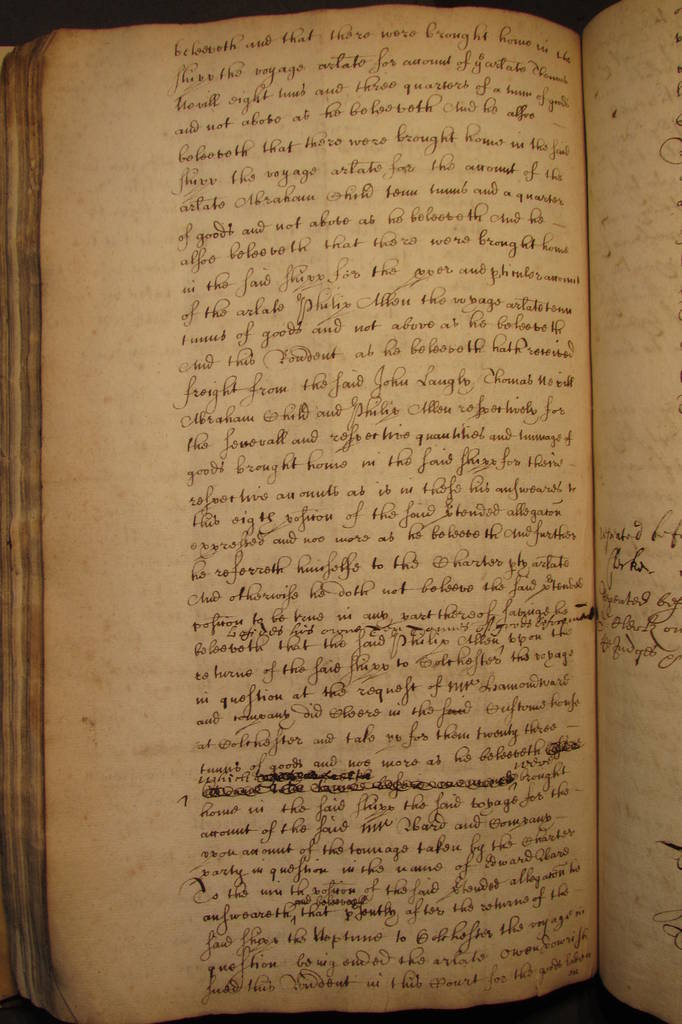 beleeveth and that there were brought home in the
shipp the voyage arlate for account of ye arlate Thomas
Nevill eight tuns and three quarters of a tunn of goods
and not above as he beleeveth And he alsoe
beleeveth that there were brought home in the said
shipp the voyage arlate for the account of the
arlate Abraham Child tenn tunns and a quarter
of goods and not above as he beleeveth And he
alsoe beleeveth that there were brought home
in the said shipp for the pper and pticuler account
of the arlate Philip Allen the voyage arlate tenn
tunns of goods and not above as he beleeveth
And this Rendent as he beleeveth hath received
freight from the said John Langly Thomas Nevill
Abraham Child and Philip Allen respectively for
the severall and respective quantities and tunnage of
goods brought home in the said shipp for theire
respective accounts as is in these his answeares to
this eigth position of the said ptended allegaton
expressed and noe more as he beleeveth And further
he referreth himselfe to the Charter pty arlate
And otherwise he doth not beleeve the said ptended
position to be true in any part thereof saving he
besides his owne Ten Tonnes of goods
beleeveth that the said Philip Allen upon the
returne of the said shipp to Colchester the voyage
in question at the request of Mr Edmond Ward
and company did Sweare in the Custome house
at Colchester and take up for them twenty three
tunns of goods and noe more as he beleeveth
which were brought
home in the said shipp the said voyage for the
account of the said Mr Ward and Company
upon account of the tonnage taken by the Charter
party in question in the name of Edward Ward
To the ninth position of the said ptended allegaton he
answeareth and beleeveth that psently after the returne of the
said shipp the Neptune to Colchester the voyage in
question being ended the arlate Owen
sued this Rendent in this Court for the goods
on
repeated before
Clerke
Repeated before
Clerke
Judges